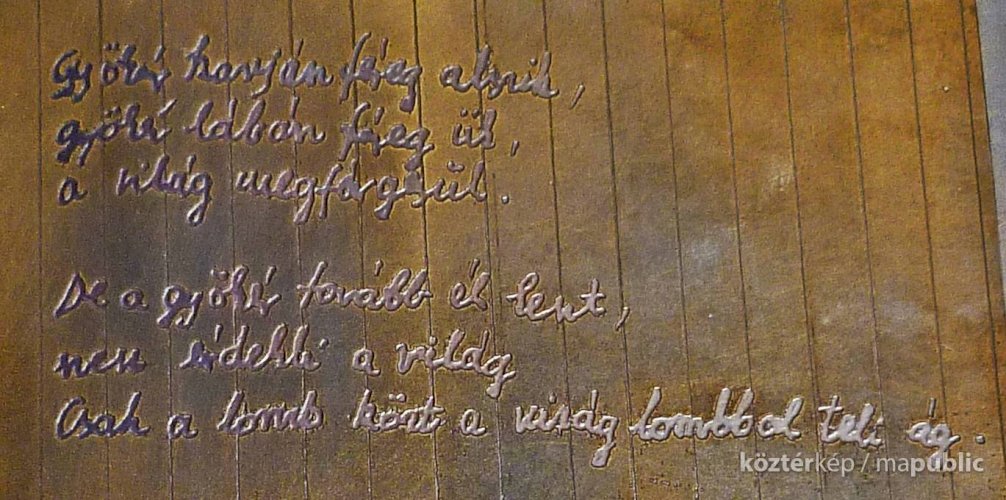 Gyökér karján féreg alszik,
gyökér lábán féreg ül,
a világ megférgesül.
De a gyökér tovább él lent,
nem érdekli a világ
Csak a lomb közt a virág lombbal teli ág.
köztérkép / mapublic